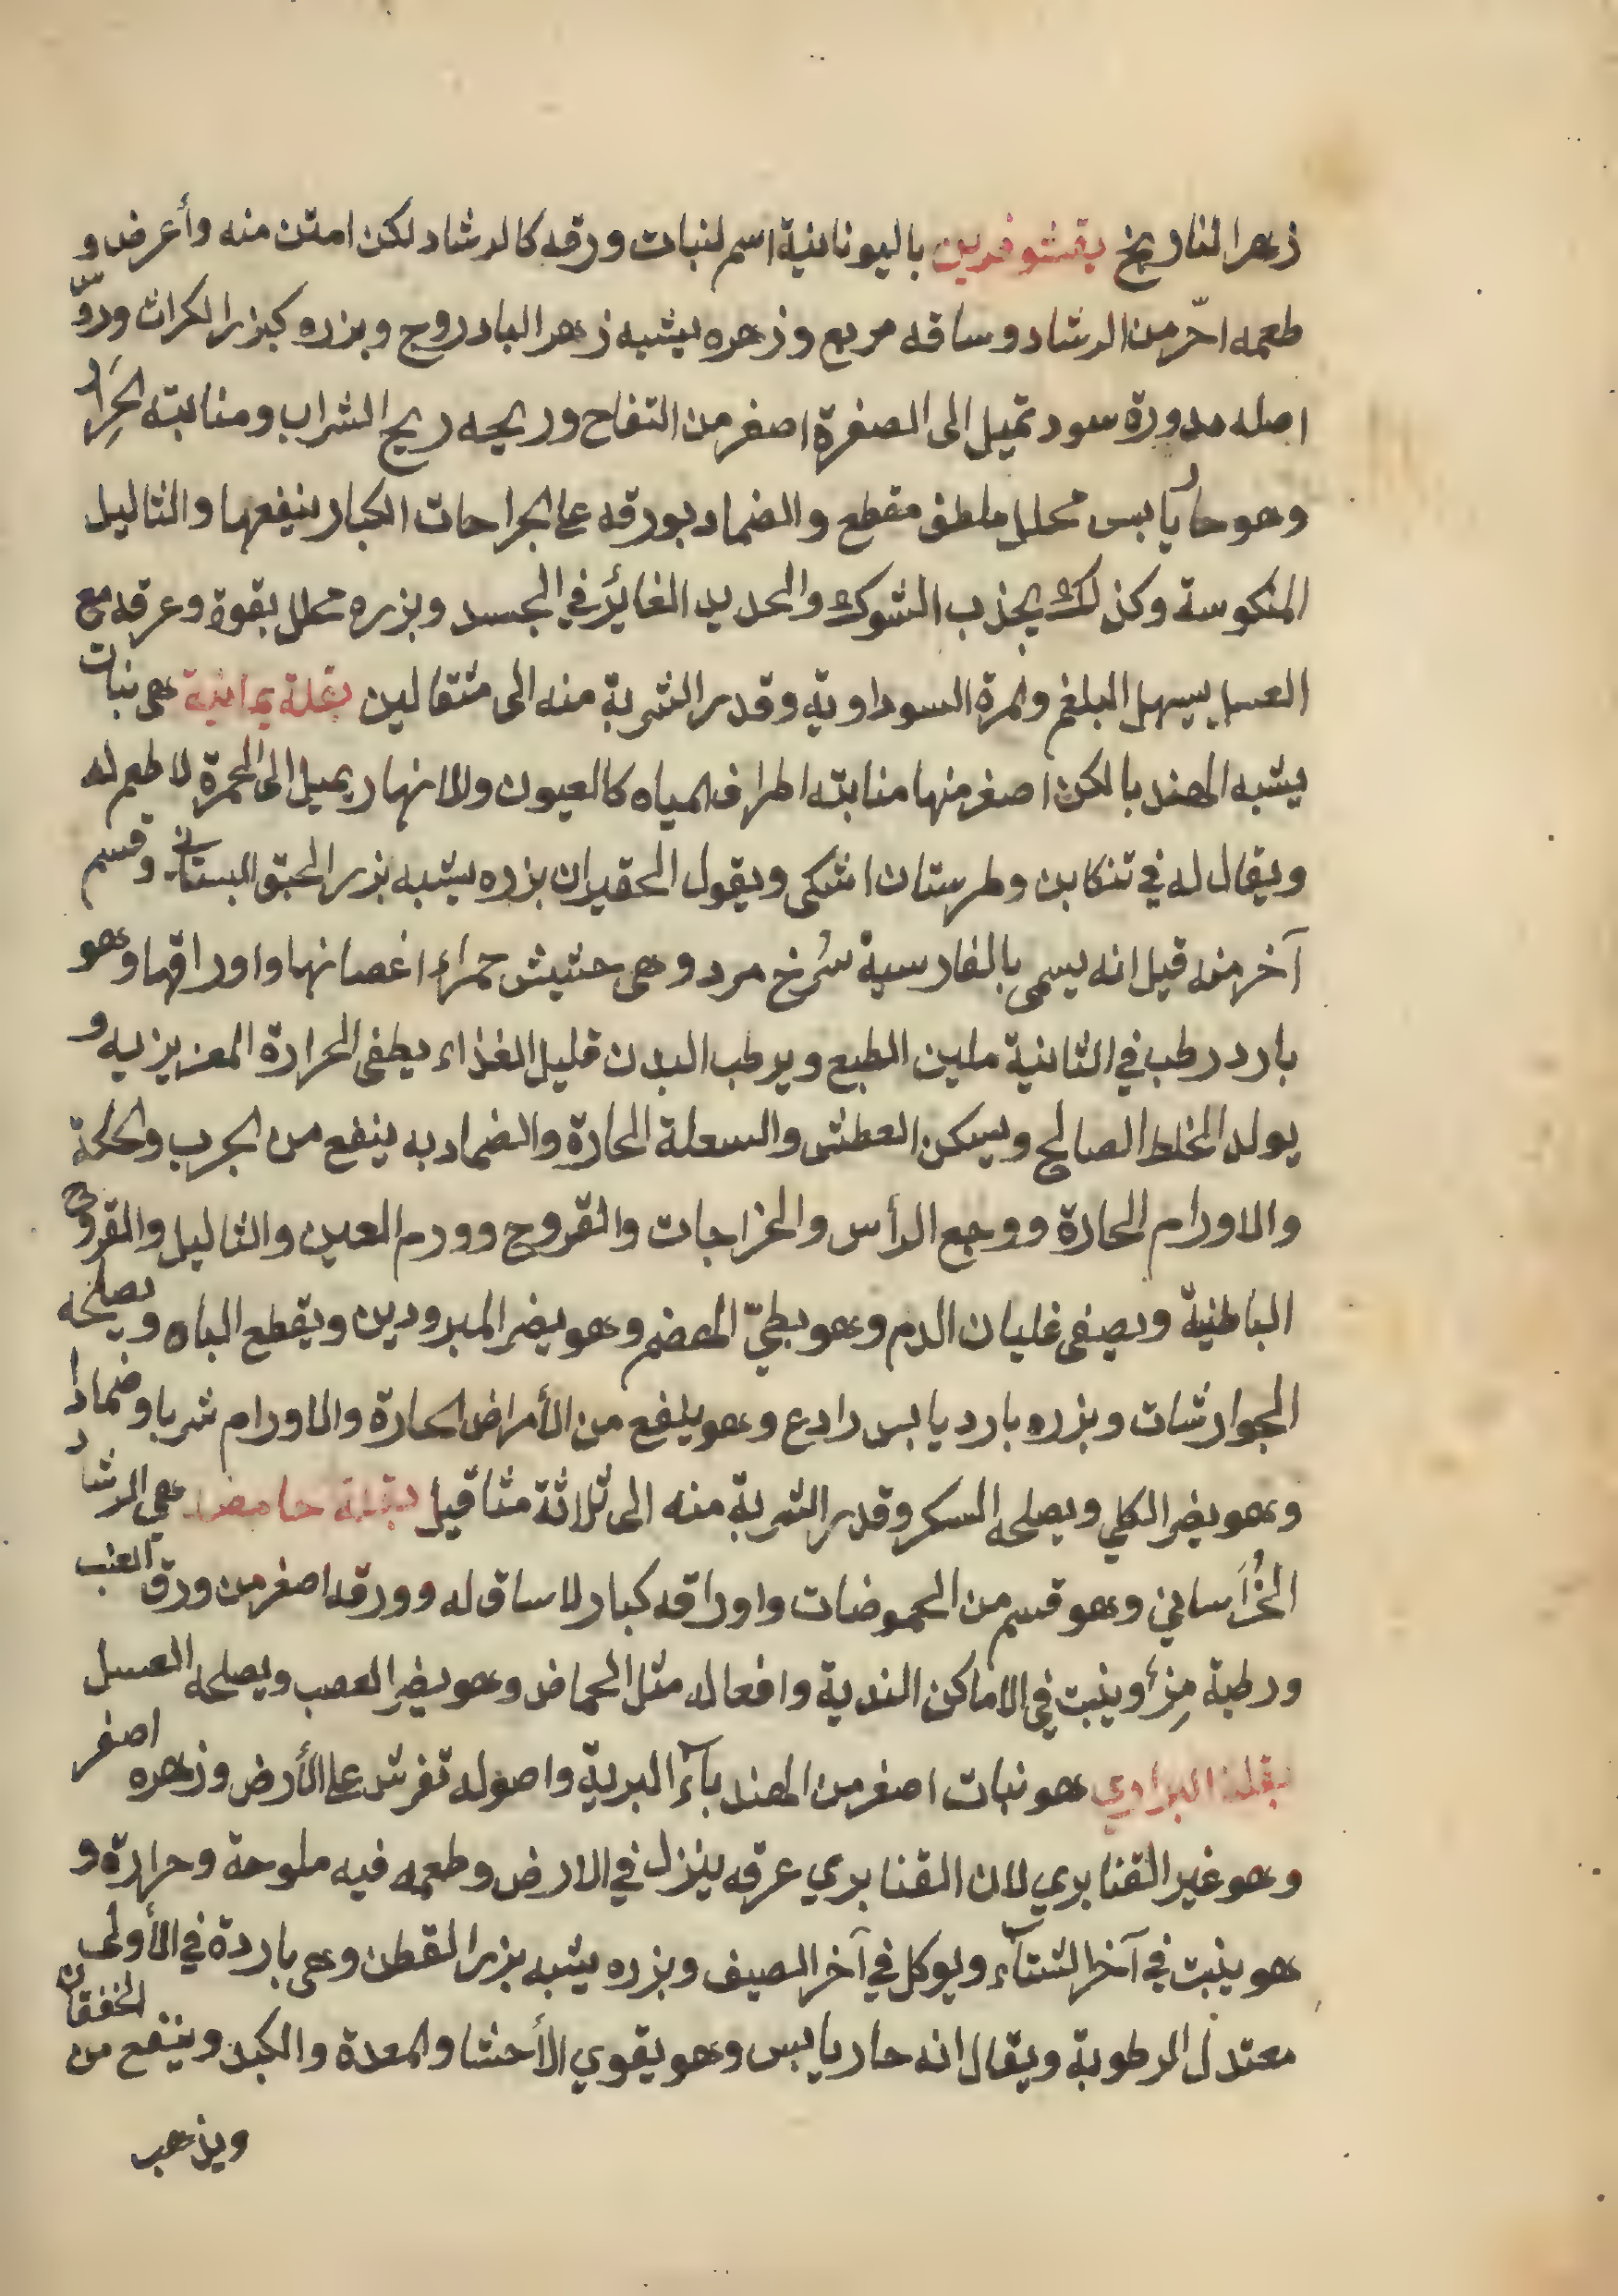 زهر النارنج بقشوفرين باليونانية اسم لنبات ورقه كالرشاد لكن امتن منه وأعرض و
طعمه احّر من الرشاد وساقه مربع وزهره يشبه زهر البادروج وبزره كبزر الكراث ورؤس
اصله مدورة سود تميل الى الصفرة اصغر من التفاح وريحه ريح الشراب ومنابته الخِرَاب
وهو حار يابس محلل ملطف مقطع والضماد بورقه على الجراحات الكبار ينفعها والثاليل
المنكوسة وكذلك يجذب الشوك والحديد الغائر في الجسد وبزره محلل بقوة وعرقه مع
العسل يسهل البلغم والمرة السوداوية وقدر الشربة منه الى مثقالين بقلة يمانية هى نبات
يشبه الهندبا لكن اصغر منها منابته اطراف المياه كالعيون والانهار يميل الى الحمرة لا طعم له
ويقال له في تنكابن وطبرستان اشكى ويقول الحقير ان بزره يشبه بزر الحبق البستانى وقسم
آخر منه قيل انه يسمى بالفارسية سُرخ مرد وهى حشيش حمراء اغصانها واوراقها وهو
بارد رطب في الثانية ملين الطبع ويرطب البدن قليل الغذاء يطفى الحرارة العزيزيه و
يولد الخلط الصالح ويسكن العطش والسعلة الحارة والضماد به ينفع من الجرب والحكة
والاورام الحارة ووجع الرأس والخراجات والقروح وورم العين والثاليل والقروح
الباطنية ويصفى غليان الدم وهو بطئ الهضم وهو يضر المبرودين ويقطع الباه ويصلحه
الجوارشات وبزره بارد يابس رادع وهو ينفع من الأمراض الحارة والاورام شربا وضمادا
وهو يضر الكلي ويصلحه السكر وقدر الشربة منه الى ثلاثة مثاقيل بقلة حامضه هى الرشاد
الخُرَاساني وهو قسم من الحموضات واوراقه كبار لا ساق له وورقه اصغر من ورق العنب
ورطبة مِزاً وينبت في الاماكن الندية وافعاله مثل الحماض وهو يضر العصب ويصلحه العسل
بقلة البراري هو نبات اصغر من الهندبآء البرية واصوله تفرش على الأرض وزهره اصفر
وهو غير القنابري لان القنابري عرقه ينزل في الارض وطعمه فيه ملوحة وحرارة و
هو ينبت في آخر الشتآء ويوكل في آخر الصيف وبزره يشبه بزر القطن وهى باردة في الأولى
معتدل الرطوبة ويقال انه حار يابس وهو يقوي الأحشا والمعدة والكبد وينفع من الخفقان
ويذهب